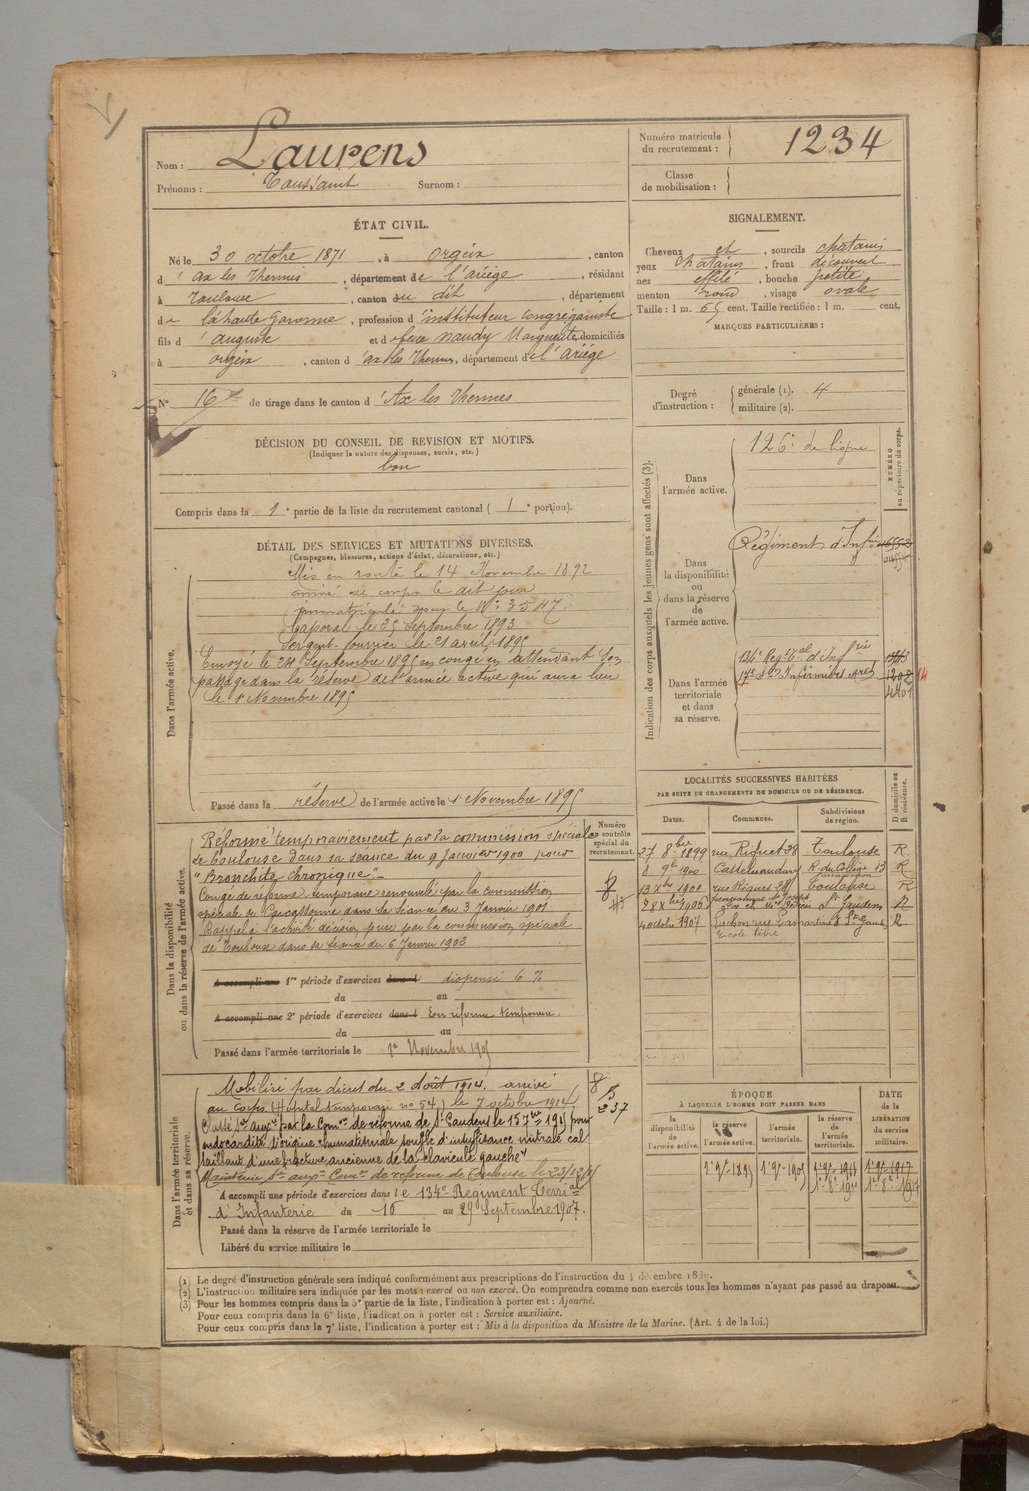 Nom : Laurens
Prénoms : Toussaint Surnom :
Numéro matricule du recrutement : 1234
Classe de mobilisation :
ÉTAT CIVIL.
Né le 30 octobre 1871, à Orgeix, canton
d' ax les Thermes, département de l'ariège, résidant
à Toulouse, canton du dit, département
de la haute Garonne, profession d'instituteur congréganiste
fils d' auguste et d feue Naudy Marguerite, domiciliés
à orgeix, canton d' ax les Thermes, département de l'ariège
N° 16 de tirage dans le canton d' Ax les Thermes
SIGNALEMENT.
Cheveux et, sourcils chatains
yeux chatains, front découvert
nez effilé, bouche petite
menton rond, visage ovale
Taille : 1 m. 65 cent. Taille rectifiée : 1 m. cent.
MARQUES PARTICULIÈRES :
Degré d'instruction : générale (1). 4
militaire (2).
DÉCISION DU CONSEIL DE REVISION ET MOTIFS.
(Indiquer la nature des dispenses, sursis, etc.)
bon
Compris dans la 1e partie de la liste du recrutement cantonal ( 1e portion).
DÉTAIL DES SERVICES ET MUTATIONS DIVERSES.
(Campagnes, blessures, actions d'éclat, décorations, etc.)
Dans l'armée active.
Mis en route le 14 Novembre 1892
arrivé au corps le dit jour
immatriculé sous le N° 3547
Caporal le 25 Septembre 1893
Sergent fourrier le 21 avril 1895
Envoyé le 24 Septembre 1895 en congé en attendant son
passage dans la réserve de l'armée active qui aura lieu
le 1r Novembre 1895
Passé dans la réserve de l'armée active le 1r Novembre 1895
Indication des corps auxquels les jeunes gens sont affectés (3).
NUMÉRO au répertoire du corps.
Dans l'armée active.
126e de ligne
Dans la disponibilité ou dans la réserve de l'armée active.
Régiment d'Infie
Dans l'armée territoriale et dans sa réserve.
134e Regt Tal d'Infrie
17e Son Infirmiers Mres
1202
4401
LOCALITÉS SUCCESSIVES HABITÉES
PAR SUITE DE CHANGEMENTS DE DOMICILE OU DE RÉSIDENCE.
D domicile ou R résidence.
Dates. Communes. Subdivisions de région.
27 8bre 1899 rue Riquet 28 Toulouse R
8 9bre 1900 Castelnaudary R. du Collège 13 R
13 Xbre 1901 rue Riquet 28 Toulouse R
28 Xbre 1906 St Gaudens R
4 octobre 1907 Luchon rue Lamartine St Gaud R
Ecole libre
Dans la disponibilité ou dans la réserve de l'armée active.
Numéro au contrôle spécial du recrutement.
Réformé temporairement par la commission spéciale
de Toulouse dans sa séance du 9 Janvier 1900 pour
"Bronchite chronique"
Congé de réforme temporaire renouvelé par la commission
spéciale de Carcassonne dans sa séance du 3 Janvier 1901
Rappelé à l'activité décision prise par la commission spéciale
de Toulouse dans sa séance du 6 Janvier 1903
A accompli une 1re période d'exercices dans l dispensé 6 %
du au
A accompli une 2e période d'exercices dans l En réforme temporaire.
du au
Passé dans l'armée territoriale le 1er Novembre 1905
Dans l'armée territoriale et dans sa réserve.
Mobilisé par décret du 2 Août 1914, arrivé
au corps (Hôpital temporaire no 54) le 7 octobre 1914
Classé Sce auxre par la Comon de réforme de St Gaudens le 15 7bre 1915 pour
endocardite d'origine rhumatismale souffle d'insuffisance mitrale cal
saillant d'une fracture ancienne de la clavicule gauche"
Maintenu Sce auxre Comon de réforme de Toulouse le 23/12/15
A accompli une période d'exercices dans le 134e Régiment Terrial
d'Infanterie du 16 au 29 Septembre 1907.
Passé dans la réserve de l'armée territoriale le
Libéré du service militaire le
ÉPOQUE
À LAQUELLE L'HOMME DOIT PASSER DANS
la disponibilité de l'armée active. la réserve de l'armée active. l'armée territoriale. la réserve de l'armée territoriale.
DATE de la LIBÉRATION du service militaire.
1r 9bre 1895 1r 9bre 1905 1r 9bre 1911 1r 9bre 1917
(1) Le degré d'instruction générale sera indiqué conformément aux prescriptions de l'instruction du décembre 1889.
(2) L'instruction militaire sera indiquée par les mots : exercé ou non exercé. On comprendra comme non exercés tous les hommes n'ayant pas passé au drapeau.
(3) Pour les hommes compris dans la 5e partie de la liste, l'indication à porter est : Ajourné.
Pour ceux compris dans la 6e liste, l'indication à porter est : Service auxiliaire.
Pour ceux compris dans la 7e liste, l'indication à porter est : Mis à la disposition du Ministre de la Marine. (Art. 4 de la loi.)